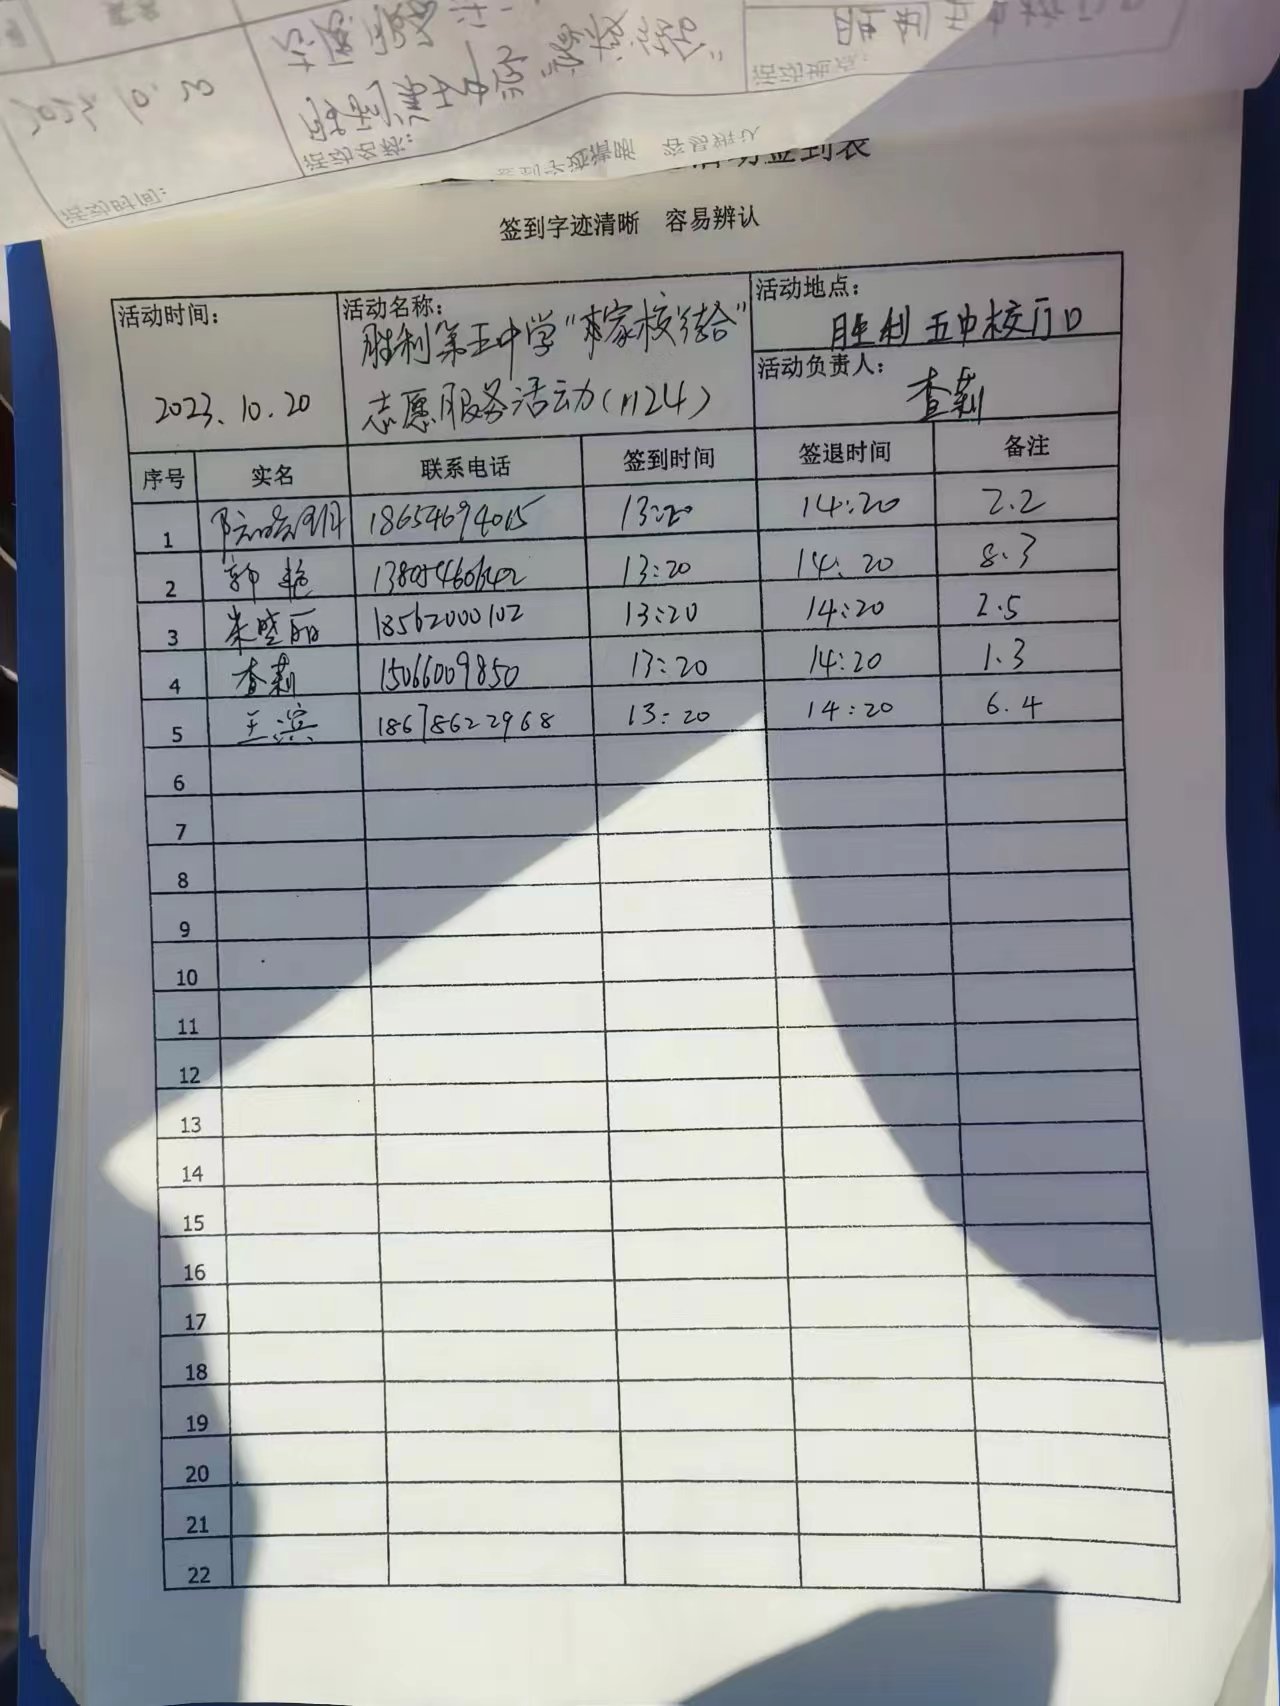 活动签到表
签到字迹清晰 容易辨认
活动时间：
2023.10.20
活动名称：
胜利第五中学“家校结合”
志愿服务活动（1124）
活动地点：
胜利五中校门口
活动负责人：
查莉
序号 实名 联系电话 签到时间 签退时间 备注
1 18654694015 13:20 14:20 2.2
2 郭艳 13805460642 13:20 14:20 8.3
3 朱晓丽 18562000102 13:20 14:20 2.5
4 查莉 15066009850 13:20 14:20 1.3
5 王滨 18678622968 13:20 14:20 6.4
6
7
8
9
10
11
12
13
14
15
16
17
18
19
20
21
22